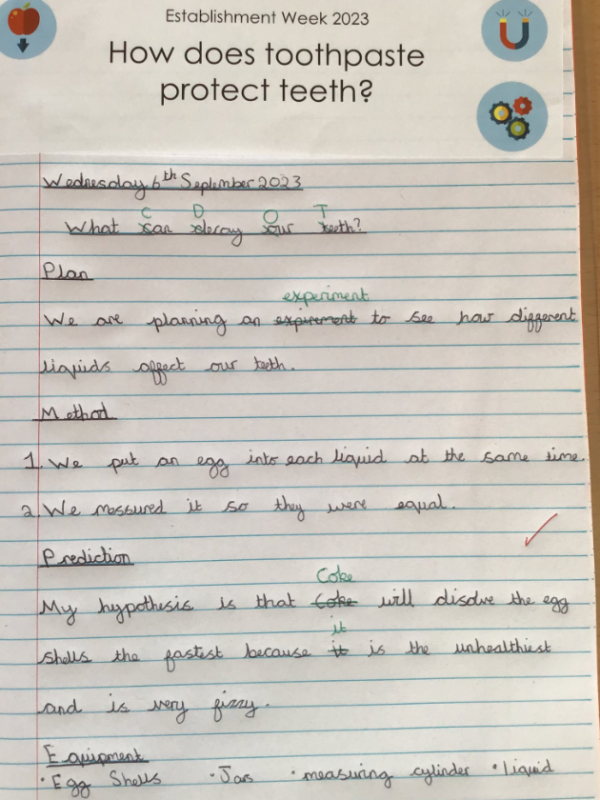 Establishment Week 2023
How does toothpaste
protect teeth?
Wednesday 6th September 2023
C D O T
What can decay our teeth?
Plan
experiment
We are planning an expirement to see how different
liquids affect our teeth.
Method
1. We put an egg into each liquid at the same time.
2. We messured it so they were equal.
Prediction
Coke
My hypothesis is that Coke will disolve the egg
it
shells the fastest because it is the unhealthiest
and is very fizzy.
Equipment
• Egg Shells • Jars • measuring cylinder • liquid